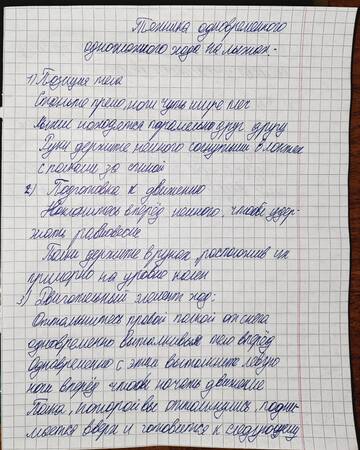 Техника одновременного
одношажного хода на лыжах.
1) Позиция тела
Станьте прямо, ноги чуть шире плеч
Лыжи находятся паралельно друг другу
Руки держите немного согнутыми в локтях
с палками за спиной
2) Подготовка к движению
Наклонитесь вперёд немного, чтобы удер-
жать равновесие
Палки держите в руках, расположив их
примерно на уровне колен
3) Двигательный элемент хода:
Оттолкнитесь правой палкой от снега
одновременно выталкивая тело вперёд
Одновременно с этим вытолкните левую
ногу вперёд, чтобы начать движение
Палка, которой вы оттолкнулись, подни-
мается вверх и готовится к следующему